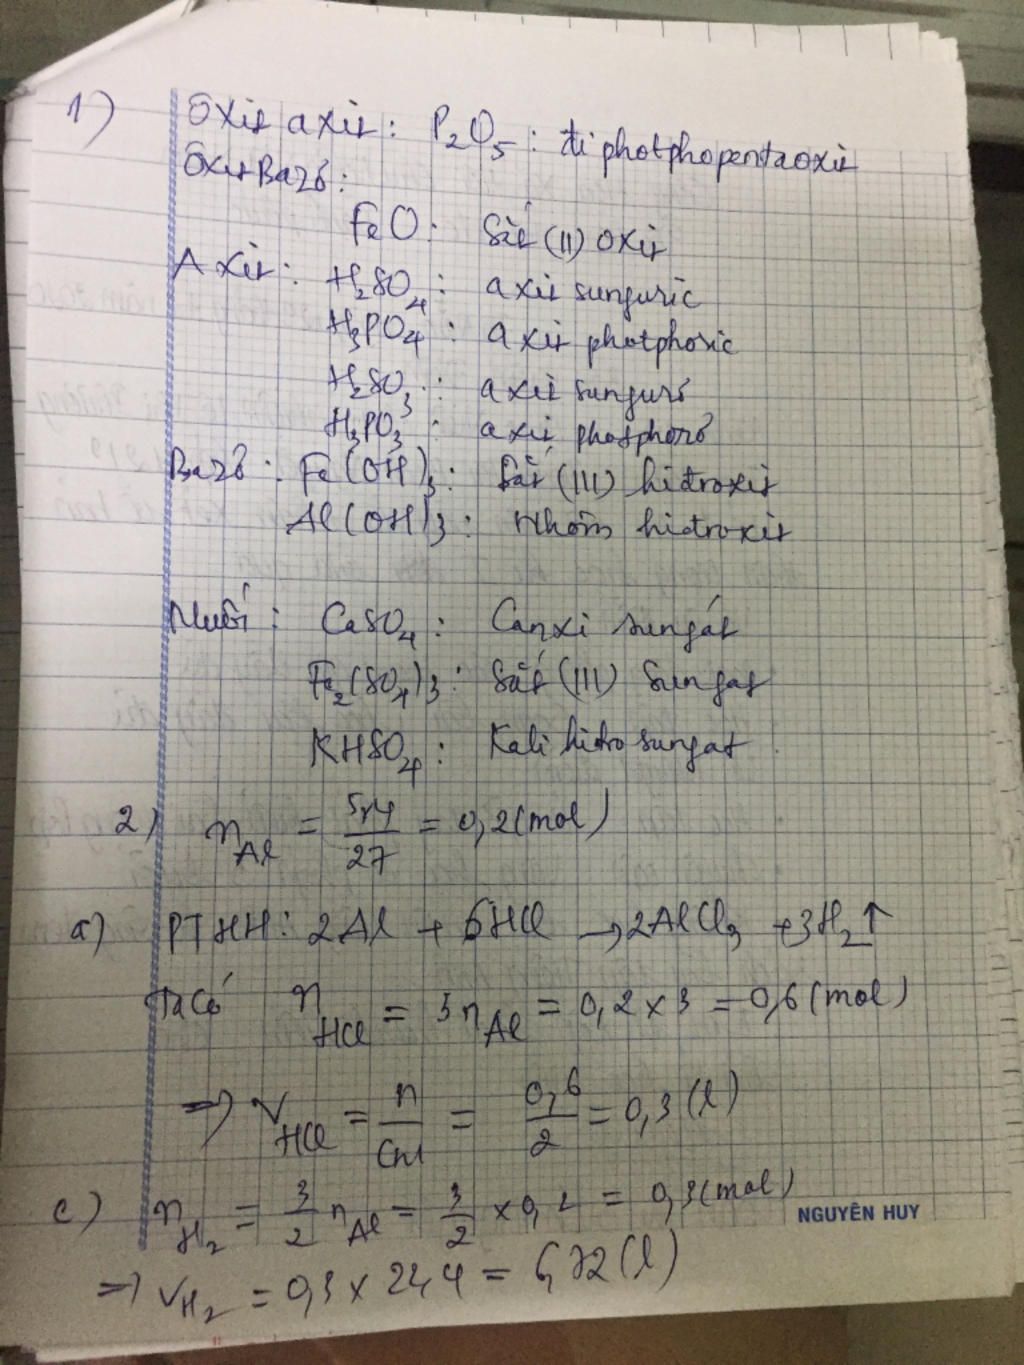 1) Oxit axit: P2O5: điphotphopentaoxit
Oxit Bazơ:
FeO: Sắt (II) oxit
Axit: H2SO4: axit sunguric
H3PO4: axit photphoric
H2SO3: axit sungurơ
H3PO3: axit phosphorơ
Bazơ: Fe(OH)3: Sắt (III) hiđroxit
Al(OH)3: Nhôm hiđroxit
Muối: CaSO4: Canxi sungát
Fe2(SO4)3: Sắt (III) Sungat
KHSO4: Kali hiđro sungat
2) nAl = 5,4/27 = 0,2 (mol)
a) PTHH: 2Al + 6HCl → 2AlCl3 + 3H2↑
Ta có nHCl = 3nAl = 0,2 x 3 = 0,6 (mol)
=> VHCl = n/CM = 0,6/2 = 0,3 (l)
c) nH2 = 3/2 nAl = 3/2 x 0,2 = 0,3 (mol)
NGUYÊN HUY
=> VH2 = 0,3 x 22,4 = 6,72 (l)